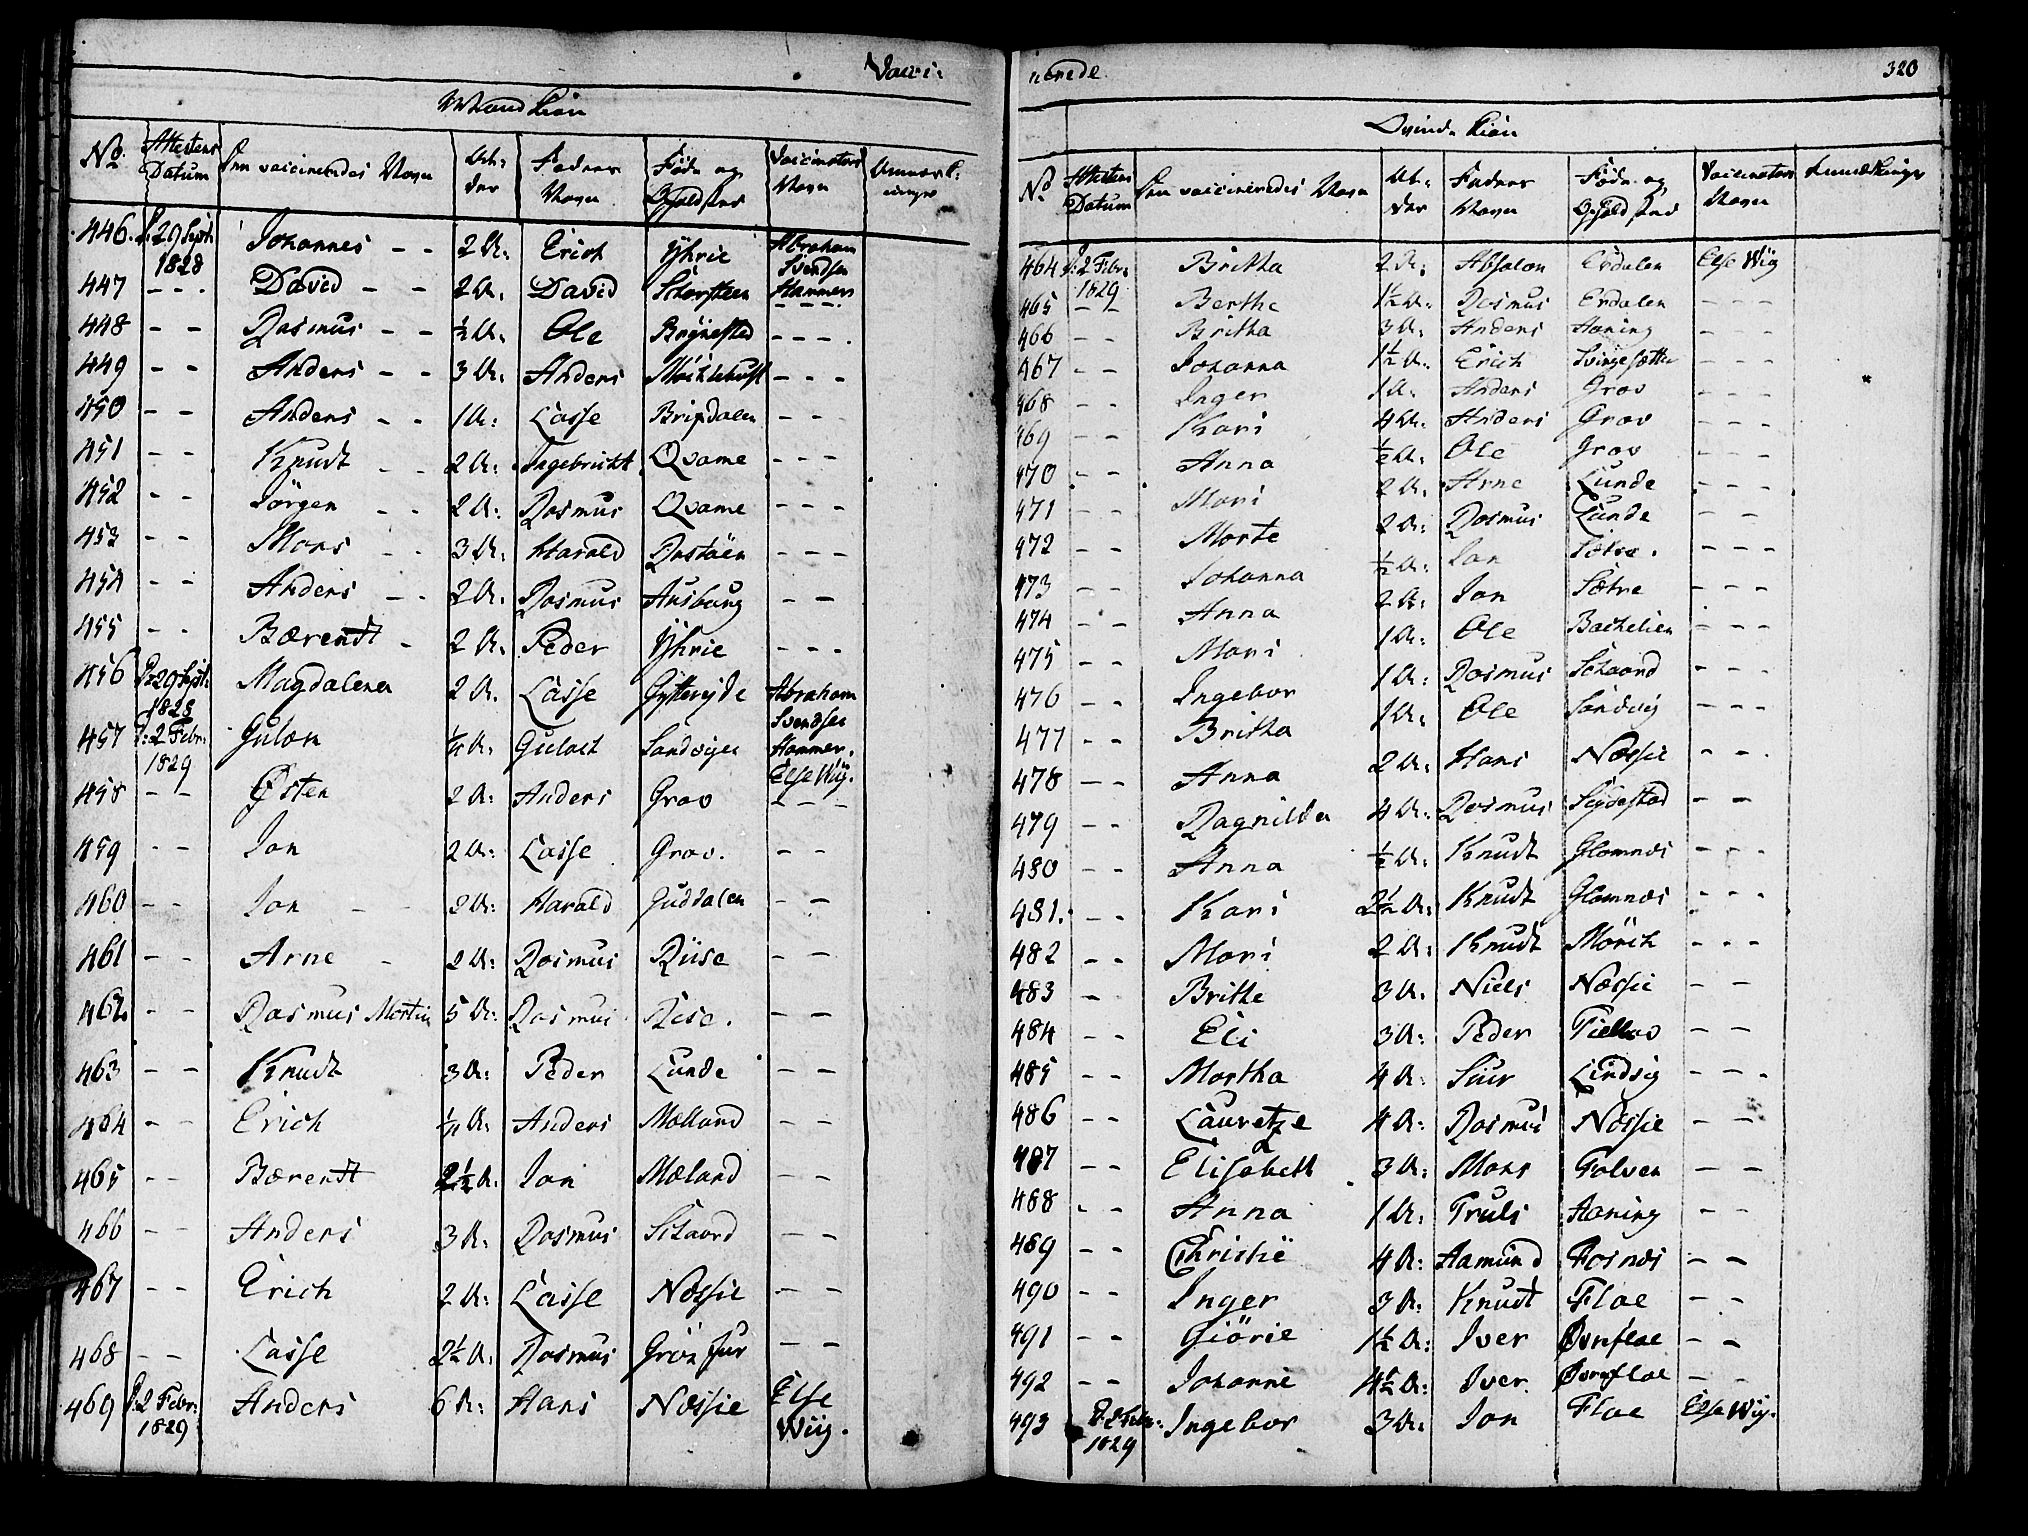 Vacci- nerede 320
Mandkiøn
No. Attestens Datum Den vaccineredes Navn Al- der Faders Navn Føde og Opholdsted Vaccinators Navn Anmærk- ninger
446. d: 29 Sept: 1828 Johannes - - 2 A: Erich Yhrie Abraham Svendsen Hammer
447 - - - David - - 2 A. David Schorsteen - - -
448 - - Rasmus - - ½ A. Ole Brynestad - - -
449 - - Anders - - 3 A. Anders - - -
450 - - Anders - - 1 A: Lasse Brixdalen - - -
451 - - Knudt - - 2 A. Ingebricht Qvame - - -
452 - - Jörgen - - 2 A. Rasmus Qvame - - -
453 - - Mons - - 3 A. Harald - - -
454 - - Anders - - 2 A. Rasmus - -
455 - - Bærendt - 2 A. Peder Yhrie - - -
456 d: 29 Sept: 1828 Magdalena 2 A. Lasse Gytterejde Abraham Svendsen Hammer.
457 d: 2 Febr: 1829 Gulan ¼ A. Gulach Sandvigen Else Wiig.
458 - - Østen 2 A. Anders Grov - - -
459 - - Jon 2 A. Lasse Grov. - -
460 - - Jon - 2 A: Harald Guddalen - -
461 - - Arne - 2 A: Rasmus Riise - -
462 - - Rasmus Mortin 5 A: Rasmus Rise. - -
463 - - Knudt 3 A: Peder Lunde - -
464 - - Erich ¼ A: Anders Melland - -
465 - - Bærendt 2½ A. Jon Mæland - -
466 - - Anders 3 A: Rasmus Schaard - -
467 - - Erich 2 A: Lasse Nessie - -
468 - - Lasse 2½ A. Rasmus - -
469 d: 2 Febr: 1829 Anders 6 A: Hans Nessie Else Wiig.
Qvindekiön
No Attestens Datum Den vaccineredes Navn Al- der Faders Navn Føde og Opholdsted Vaccinators Navn Anmærkninger
464 d: 2 Febr: 1829 Britha 2 A: Absalon Erdalen Else Wiig
465 - - Berthe 1½ A. Rasmus Erdalen - - -
466 - - Britha 3 A. Anders Aaning - - -
467 - - Johanna 1½ A. Erich Svingesætter - - -
468 - - Inger 1 A: Anders Grov - - -
469 - - Kari 4 A. Anders Grov - - -
470 - - Anna ½ A. Ole Grov - - -
471 - - Mari 2 A. Arne Lunde - - -
472 - - Morte 2 A: Rasmus Lunde - -
473 - - Johanna ½ A: Jon Sætre. - - -
474 - - Anna 2 A: Jon Sætre - - -
475 - - Mari 1 A: Ole - - -
476 - - Ingebor 1 A: Rasmus Schaard - - -
477 - - Britha 1 A: Ole Sandvig - - -
478 - - Anna 2 A: Hans Nessie - - -
479 - - Ragnilda 4 A: Rasmus - -
480 - - Anna ½ A: Knudt Glomnes - - -
481. - - Kari 2½ A. Knudt Glomnes - - -
482 - - Mari 2 A: Knudt Mörch - - -
483 - Brithe 3 A. Niels Nessie - -
484 - - Eli 3 A: Peder - -
485 - - Martha 4 A: Siur Lindvig - - -
486 - - Lauretze 4 A: Rasmus Nessie - -
487 - - Elisabeth 3 A: Mons Tolven - -
488 - - Anna 1 A: Truls Aaning - -
489 - - Christie 4 A: Aamund Fosnes - -
490 - - Inger 3 A: Knudt Floe - -
491 - - Giörie 1½ A: Iver Øvrefloe - -
492 - - Johanne 4½ A: Iver Øvrefloe - -
493 d. 2 Febr: 1829 Ingebor 3 A: Jon Floe Else Wiig.